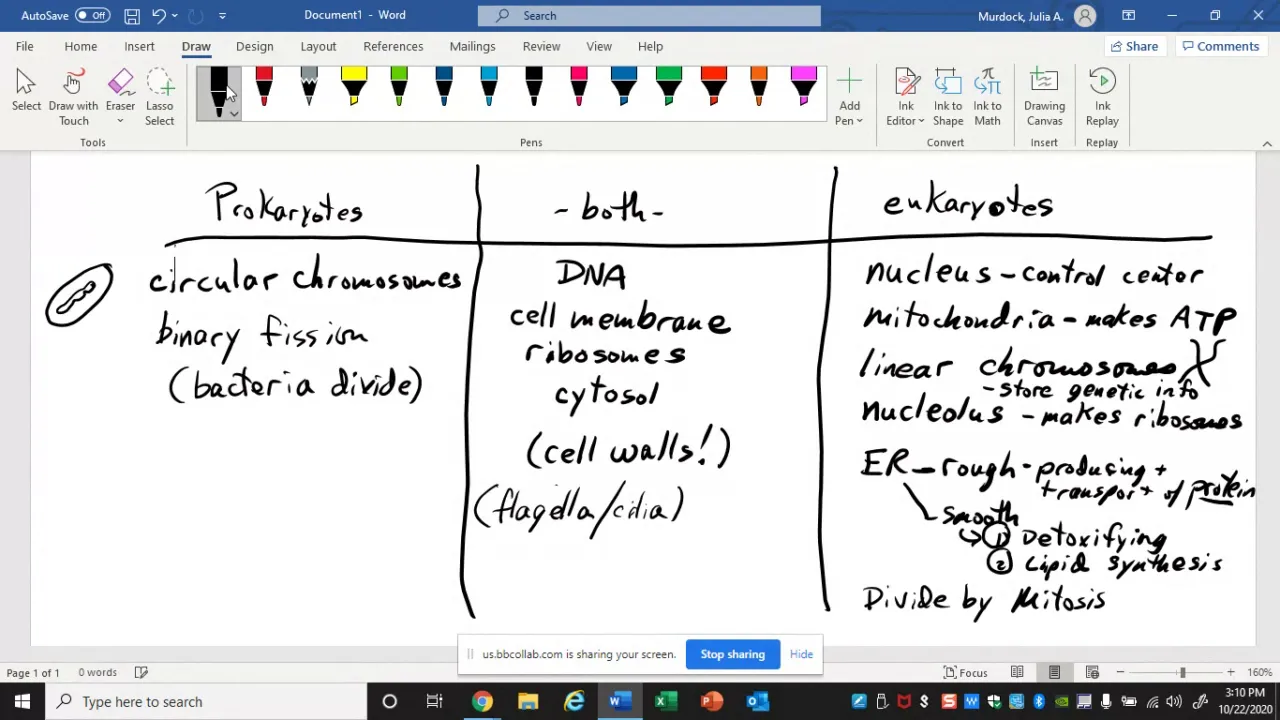 AutoSave Off Document1 - Word Search Murdock, Julia A.
File Home Insert Draw Design Layout References Mailings Review View Help Share Comments
Select Draw with Touch Eraser Lasso Select Add Pen Ink Editor Ink to Shape Ink to Math Drawing Canvas Ink Replay
Tools Pens Convert Insert Replay
Prokaryotes
circular chromosomes
binary fission
(bacteria divide)
- both -
DNA
cell membrane
ribosomes
cytosol
(cell walls!)
(flagella/cilia)
eukaryotes
nucleus - control center
mitochondria - makes ATP
linear chromosomes
- store genetic info
nucleolus - makes ribosomes
ER - rough - producing +
transport of protein
smooth
① Detoxifying
② Lipid synthesis
Divide by Mitosis
us.bbcollab.com is sharing your screen. Stop sharing Hide
Page 1 of 1 0 words Focus 160%
Type here to search 3:10 PM
10/22/2020